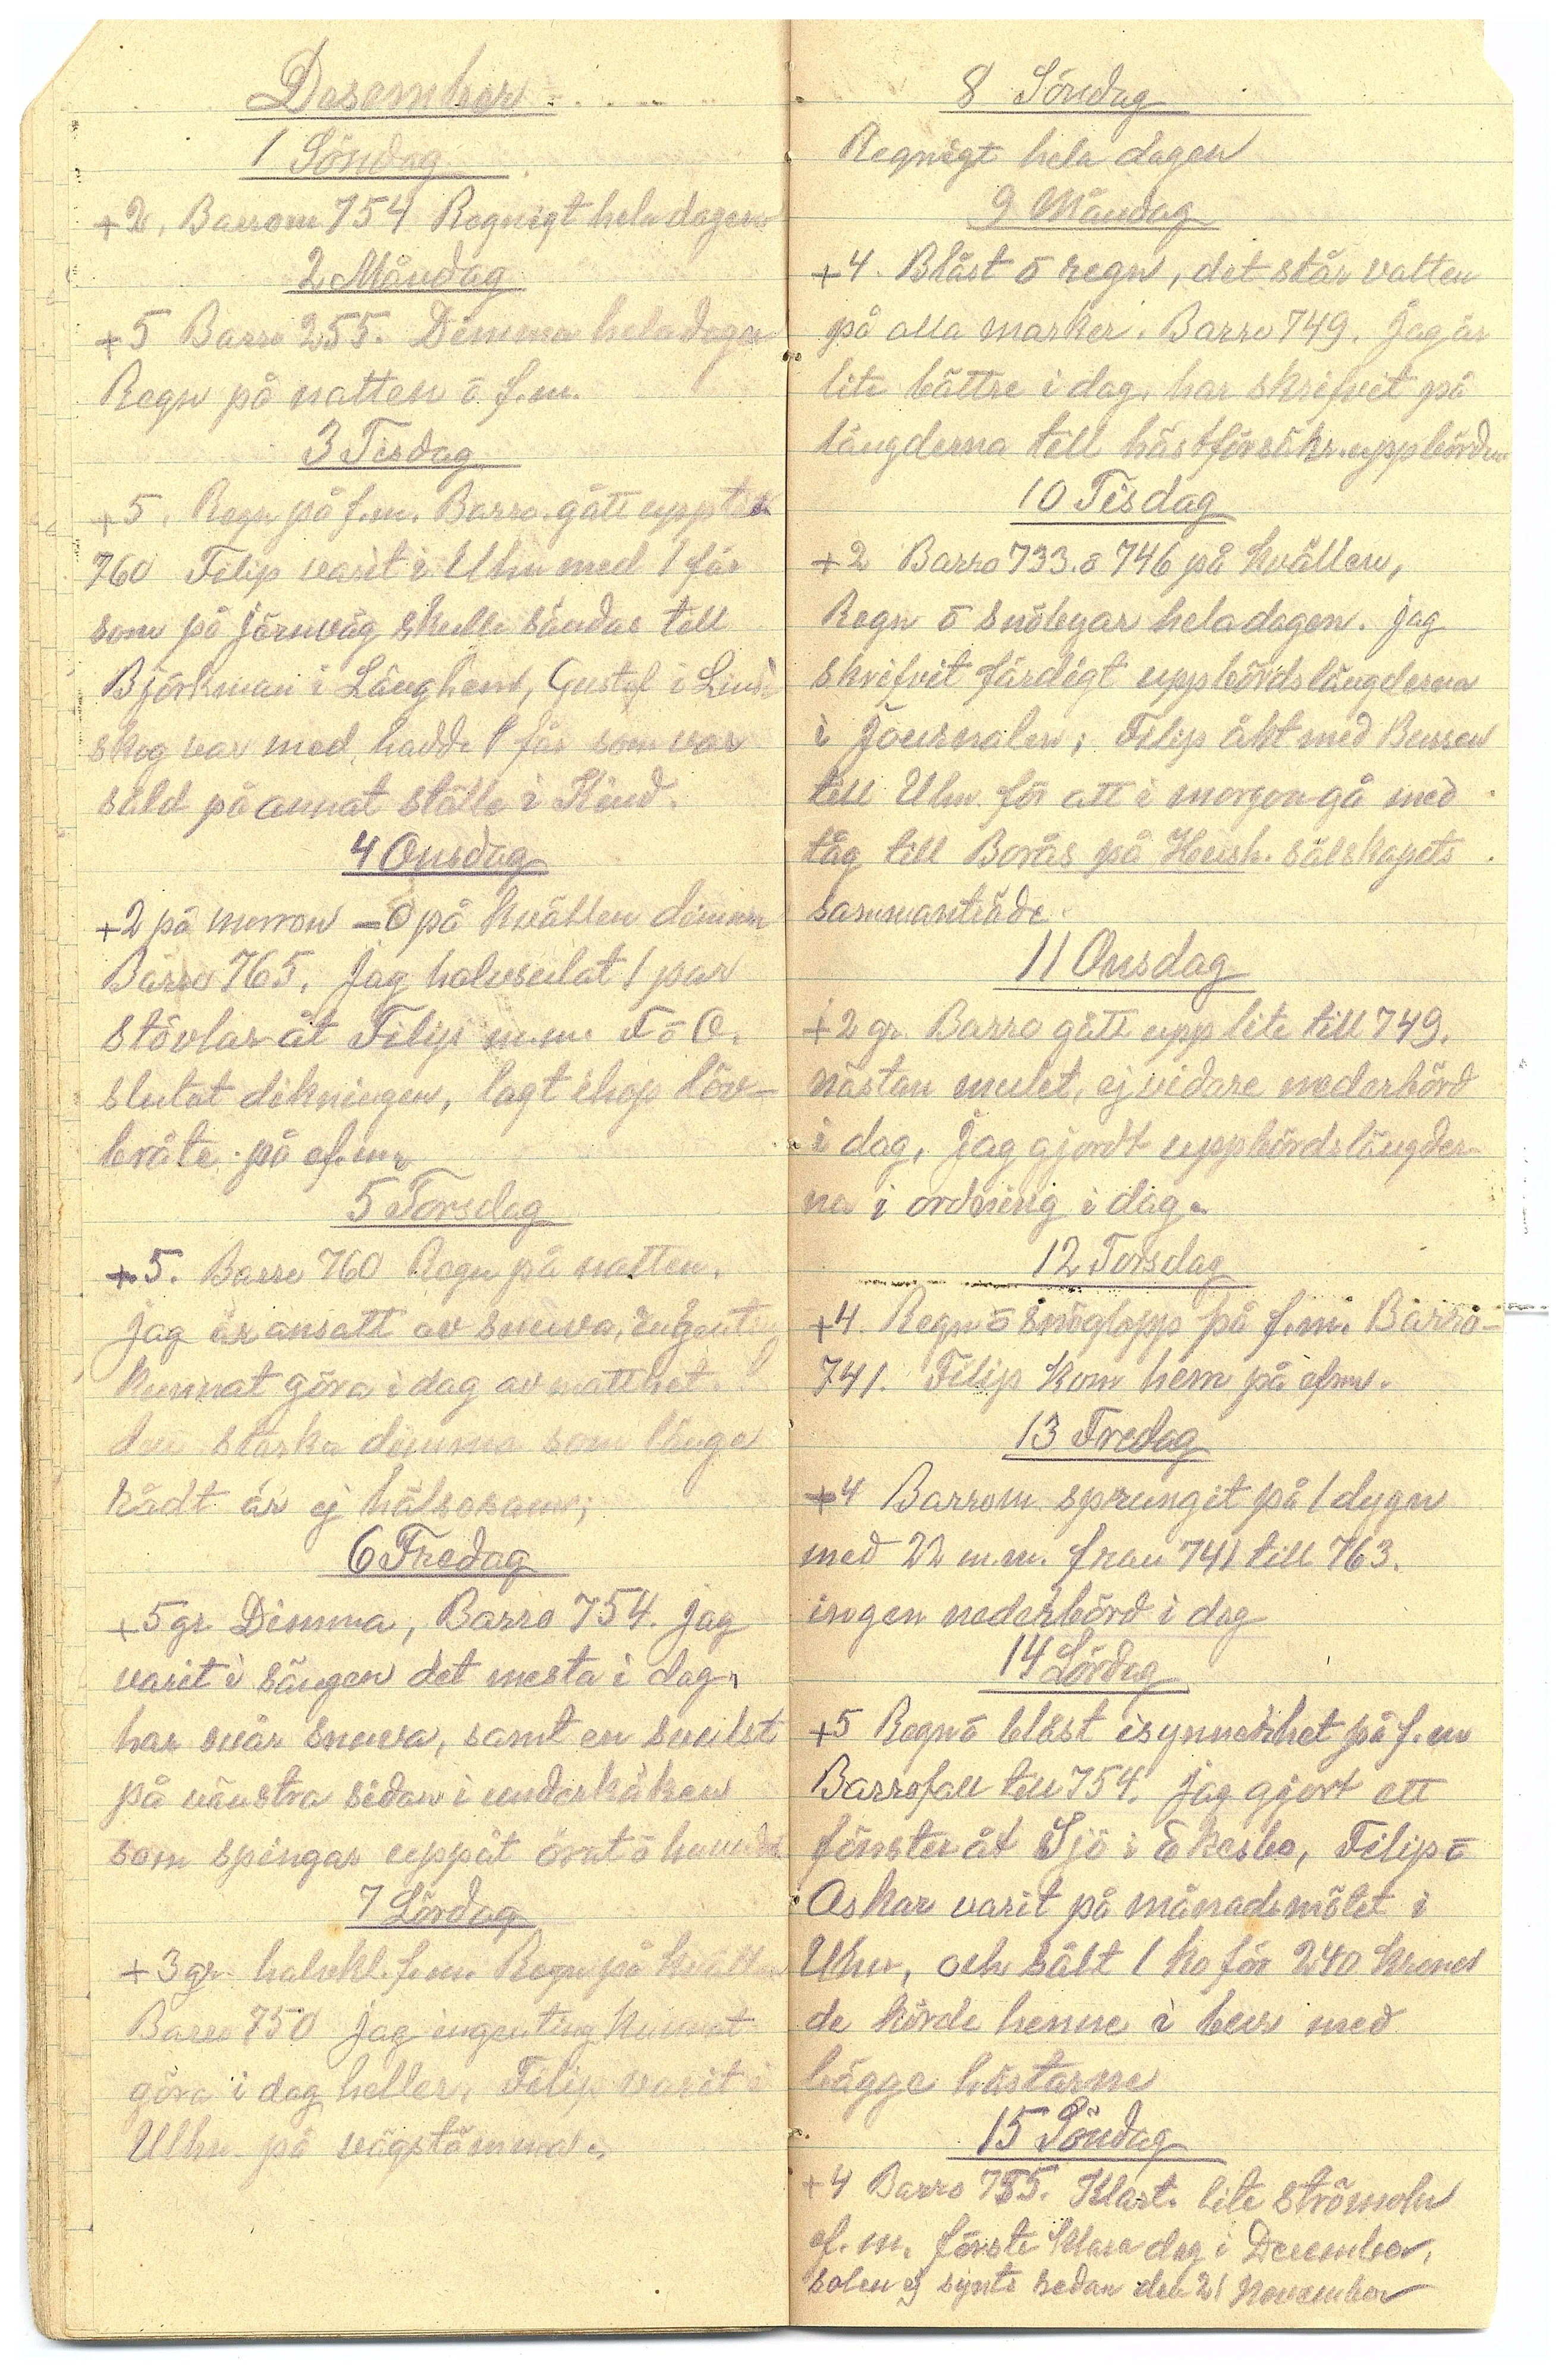 Desember
1 Söndag
+2, Barrom 754 Regnigt hela dagen
2 Måndag
+5 Barro 255. Dimma hela dagen
Regn på natten ō f.m.
3 Tisdag
+5, Regn på f.m. Barro. gått upp till
760 Filip varit i Uhn med 1 får
som på järnväg skulle sändas till
Björkman i Långhem, Gustaf i Lind
skog var med hadde 1 får som var
såld på annat ställe i Kind.
4 Onsdag
+2 på morron -0 på kvällen dimma
Barro 765. Jag halvsulat 1 par
stövlar åt Filip m.m. F ō O.
slutat dikningen, lagt ihop löv-
bråte på ef.m.
5 Torsdag
+5. Barro 760 Regn på natten.
jag är ansatt av snuva, ingenting
kunnat göra i dag av matthet.
den starka dimma som länge
rådt är ej hälsosam;
6 Fredag
+5 gr Dimma, Barro 754. jag
varit i sängen det mesta i dag,
har svår snuva, samt en svulst
på vänstra sidan i underkäken
som spingar uppåt örat ō huvudet
7 Lördag
+3 gr. halvkl. f.m. Regn på kvällen
Barro 750 Jag ingenting kunnat
göra i dag heller, Filip varit i
Uhn på vägstämma.
8 Söndag
Regnigt hela dagen
9 Måndag
+4. Blåst ō regn, det står vatten
på alla marker. Barro 749. Jag är
lite bättre i dag, har skrifvit på
längderna till hästförsäkr.uppbörden
10 Tisdag
+2 Barro 733. ō 746 på kvällen,
Regn ō snöbyar hela dagen. jag
skrifvit färdigt uppbördslängderna
i Journalen; Filip åkt med Bussen
till Uhn för att i morgon gå med
tåg till Borås på Hush. sälskapets
sammanträde
11 Onsdag
+2 gr. Barro gått upp lite till 749.
nästan mulet, ej vidare nederbörd
i dag, Jag gjordt uppbördslängder
na i ordning i dag.
12 Torsdag
+4. Regn ō snöglopp på f.m. Barro-
741. Filip kom hem på efm.
13 Fredag
+4 Barrom sprungit på 1 dygn
med 22 m.m. från 741 till 763.
ingen nederbörd i dag
14 Lördag
+5 Regn ō blåst isynnerhet på f.m
Barrofall till 754. jag gjort ett
fönster åt Sjö i Ekesbo, Filip ō
Oskar varit på månadsmötet i
Uhn, och sält 1 ko för 240 kronor
de körde henne i bur med
bägge hästarne
15 Söndag
+4 Barro 755. Klart. lite strömoln
ef.m. första klara dag i December,
solen ej synts sedan den 21 November